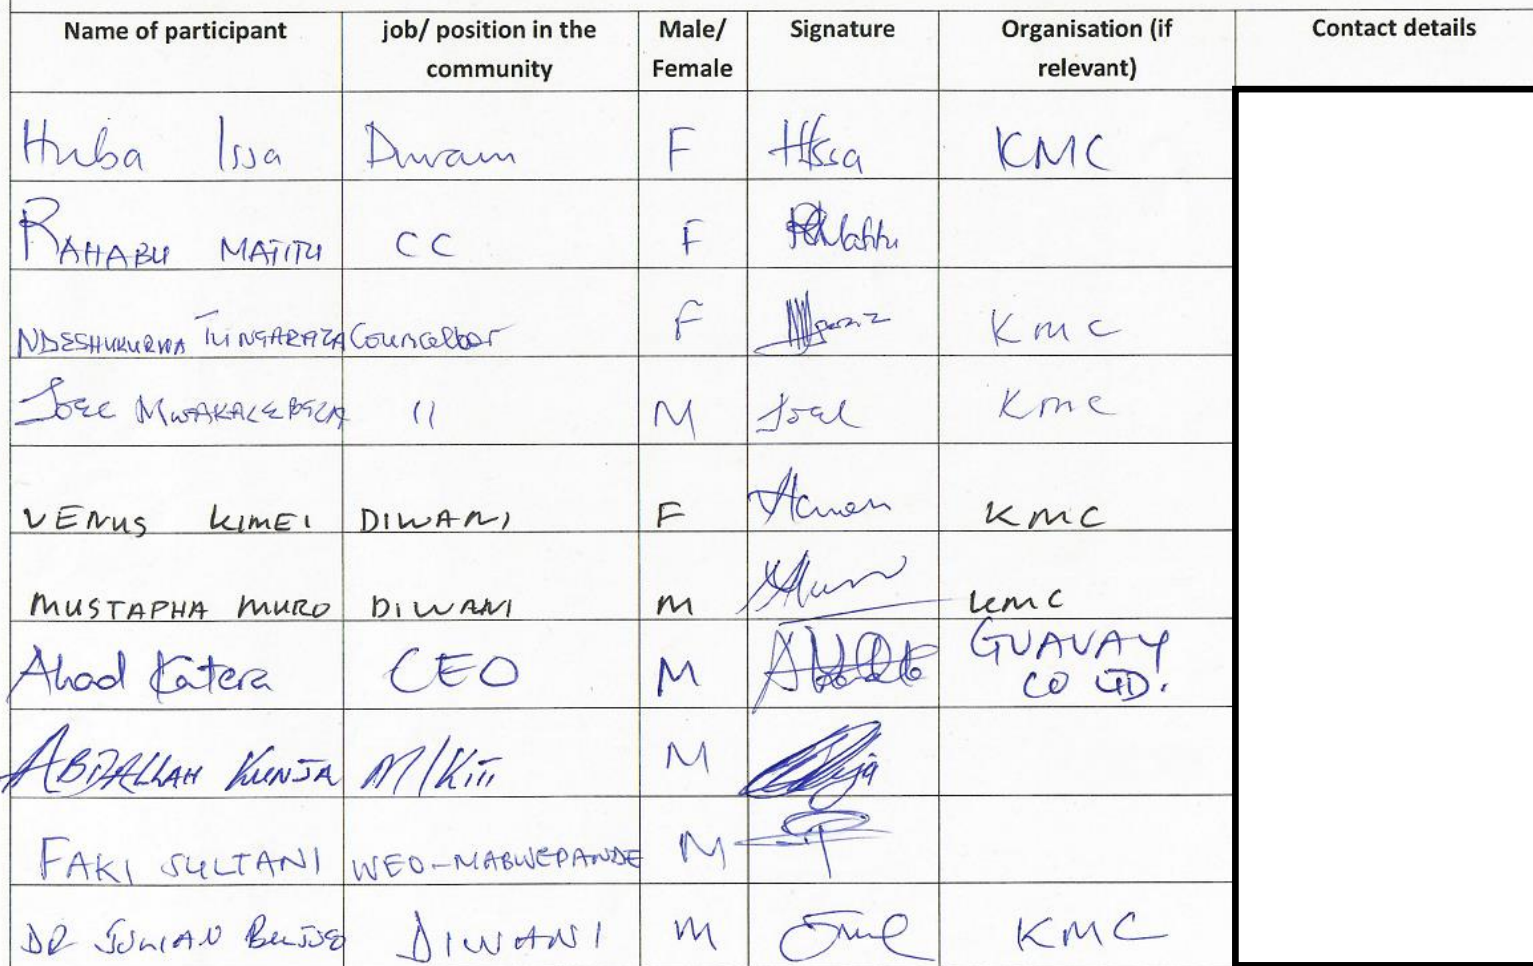 Name of participant job/ position in the community Male/ Female Signature Organisation (if relevant) Contact details
Huba Issa Diwani F HIssa KMC
RAHABU MATITU CC F RMatitu
NDESHUKURWA TUNGARAZA Councellor F KMC
Joel 11 M Joel KMC
VENUS KIMEI DIWANI F KMC
MUSTAPHA MURO DIWANI M KMC
Ahad Katera CEO M GUAVAY CO LTD.
ABDALLAH KUNJA M/Kiti M
FAKI SULTANI WEO-MABWEPANDE M
DR JULIAN BUJUGO DIWANI M KMC